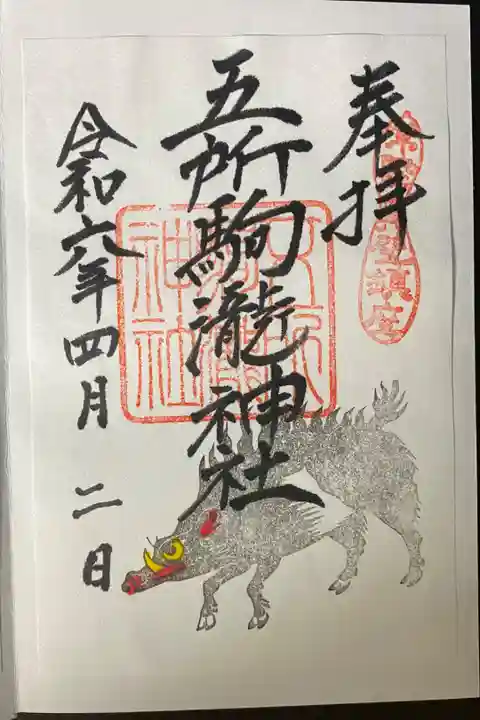 奉拝
五所駒瀧神社
令和六年四月二日
神社